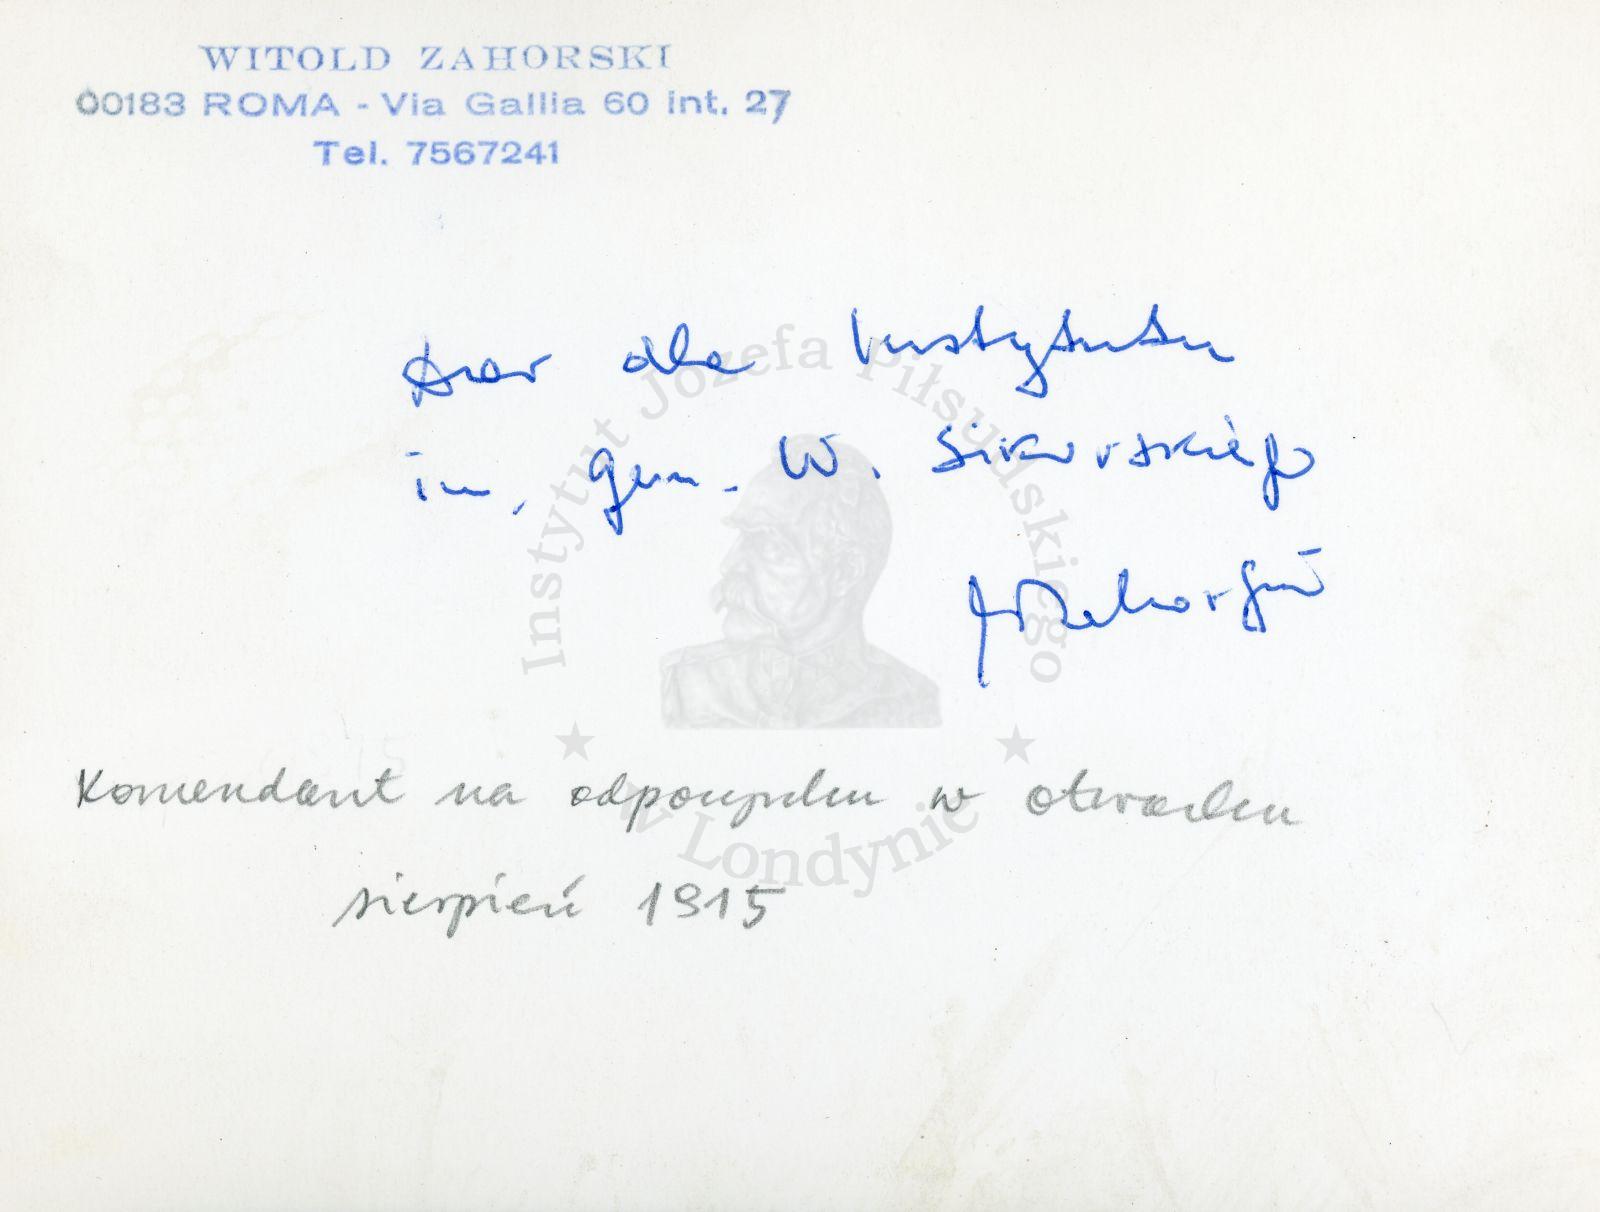 WITOLD ZAHORSKI
00183 ROMA - Via Gallia 60 int. 27
Tel. 7567241
Dar dla Instytutu
im. gen. W. Sikorskiego
WZahorski
Instytut Józefa Piłsudskiego
w Londynie
Komendant na odpoczynku w Otwocku
sierpień 1915